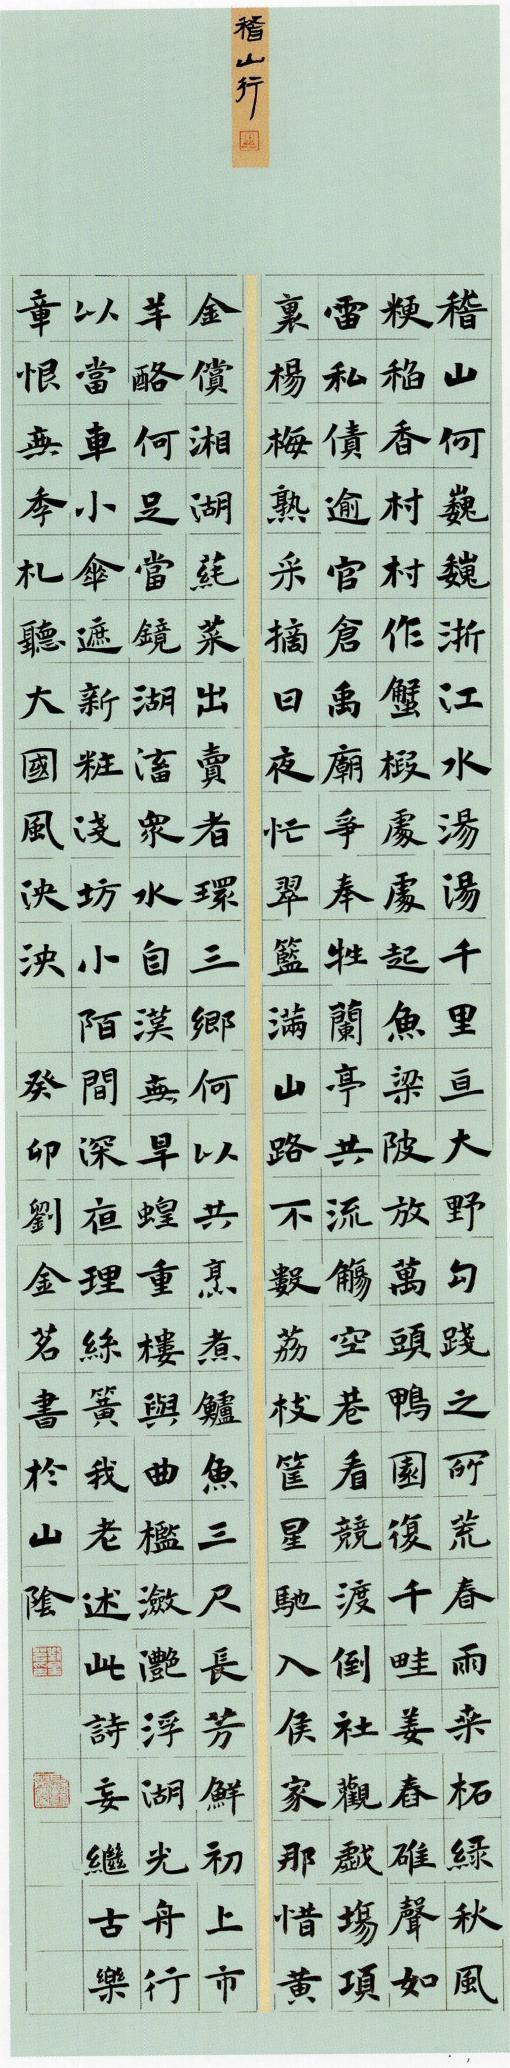 稽山行
稽山何巍巍浙江水湯湯千里亘大野勾踐之所荒春雨桒柘緑秋風
粳稻香村村作蟹椴處處起魚梁陂放萬頭鴨園復千畦姜舂碓聲如
雷私債逾官倉禹廟爭奉牲蘭亭共流觴空巷看競渡倒社觀戯場項
裏楊梅熟采摘日夜忙翠籃滿山路不數荔枝筐星馳入侯家那惜黄
金償湘湖蒓菜出賣者環三鄉何以共烹煮鱸魚三尺長芳鮮初上市
羊酪何足當鏡湖滀衆水自漢無旱蝗重樓與曲檻瀲灧浮湖光舟行
以當車小傘遮新粧淺坊小陌間深夜理絲簧我老述此詩妄繼古樂
章恨無季札聽大國風泱泱 癸卯劉金茗書於山陰